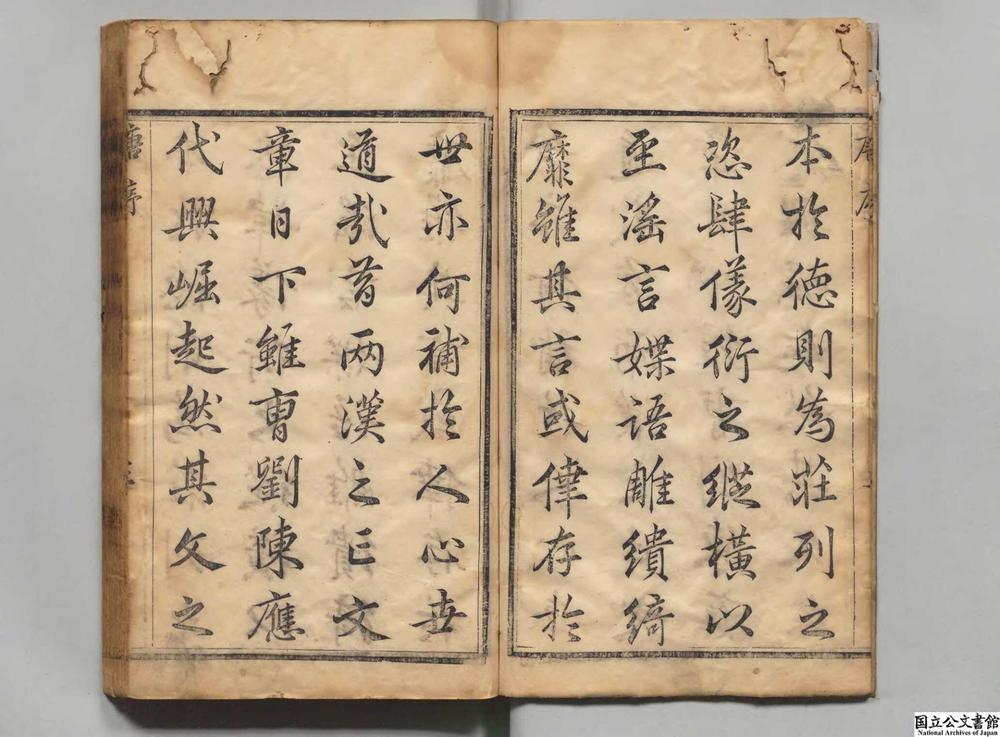 本於德則為莊列之
恣肆儀衍之縱橫以
至滛言媟語雕繢綺
靡雖其言或偉存於
世亦何補於人心世
道哉昔兩漢之亡文
章日下雖曹劉陳應
代興崛起然其文之
唐序
国立公文書館
National Archives of Japan